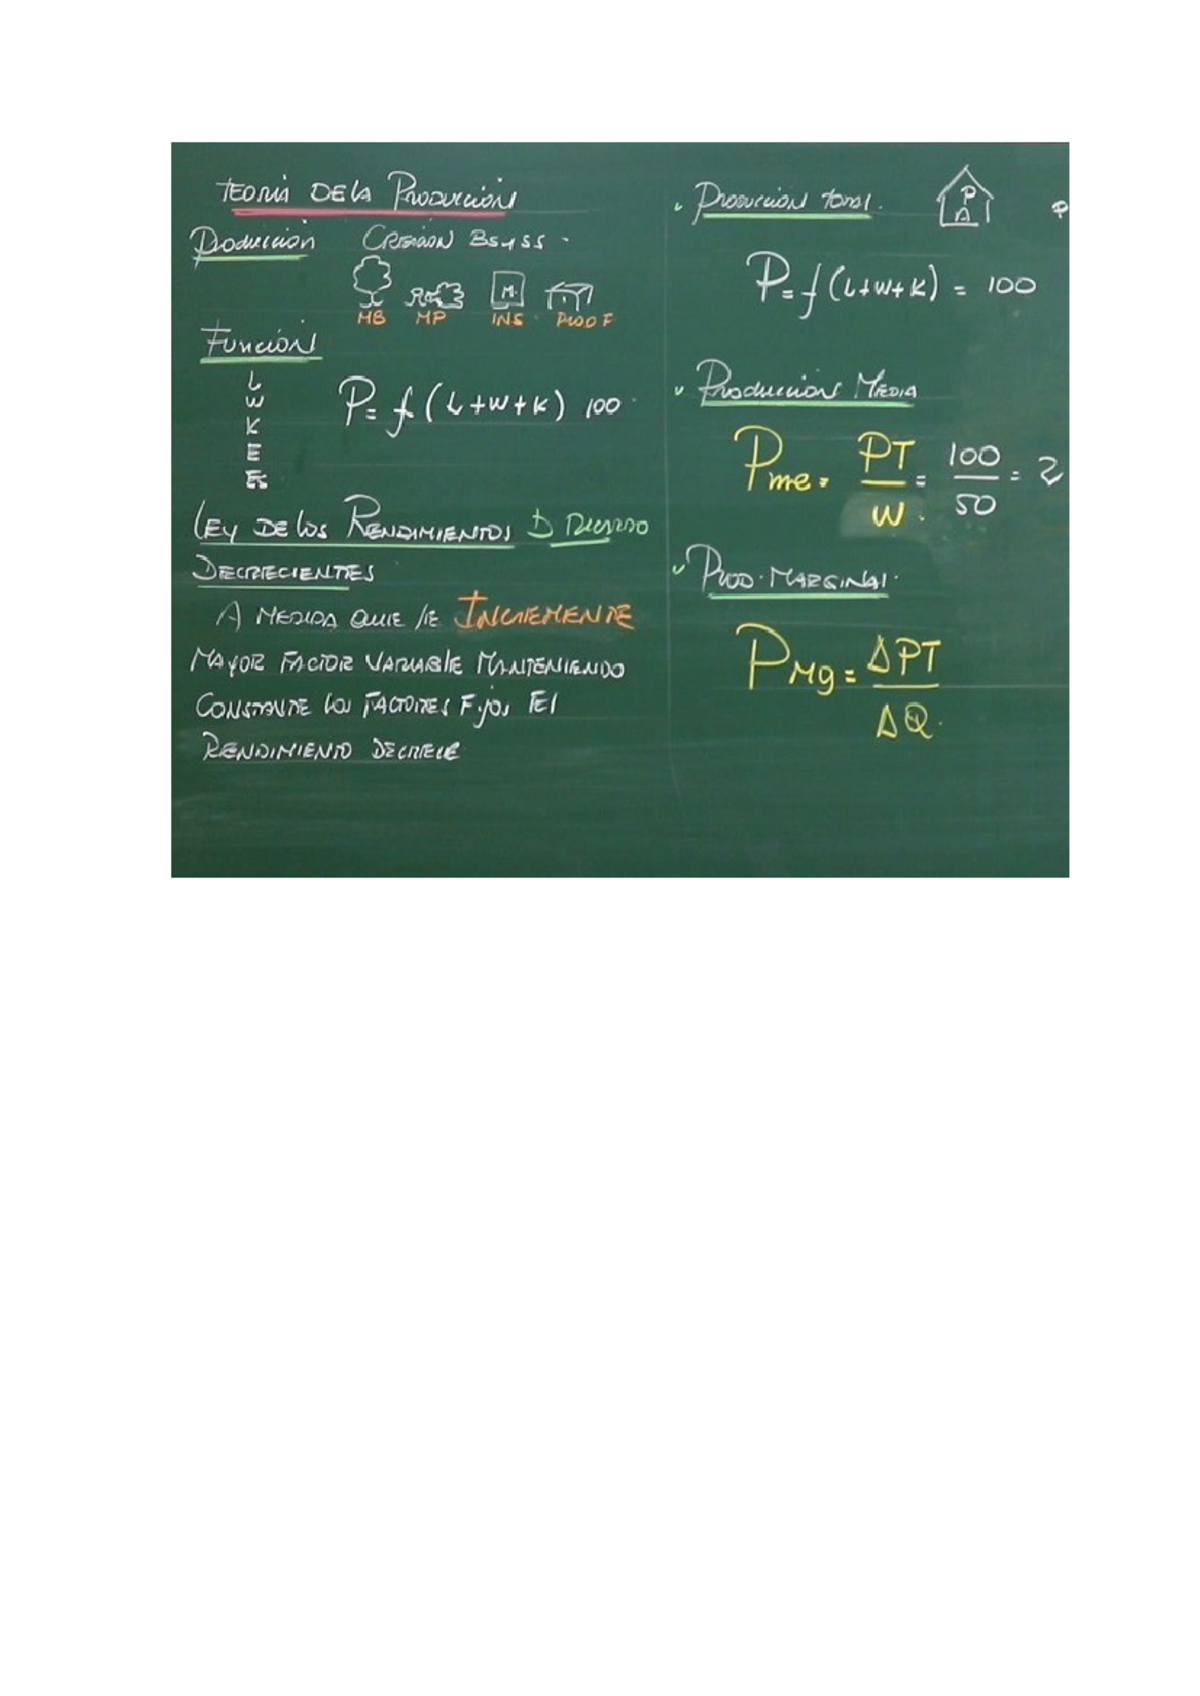 TEORIA DE LA PRODUCCION
PRODUCCION CREACION BS Y SS.
M.
MB MP INS. PROD F
FUNCION
L
W
K
E
Es
P = f (L+W+K) 100
LEY DE LOS RENDIMIENTOS D RICARDO
DECRECIENTES
A MEDIDA QUE SE INCREMENTE
MAYOR FACTOR VARIABLE MANTENIENDO
CONSTANTE LOS FACTORES FIJOS EL
RENDIMIENTO DECRECE
PRODUCCION TOTAL.
P
P = f (L+W+K) = 100
PRODUCCION MEDIA
Pme = PT/W = 100/50 = 2
PROD. MARGINAL.
PMg = ΔPT/ΔQ.